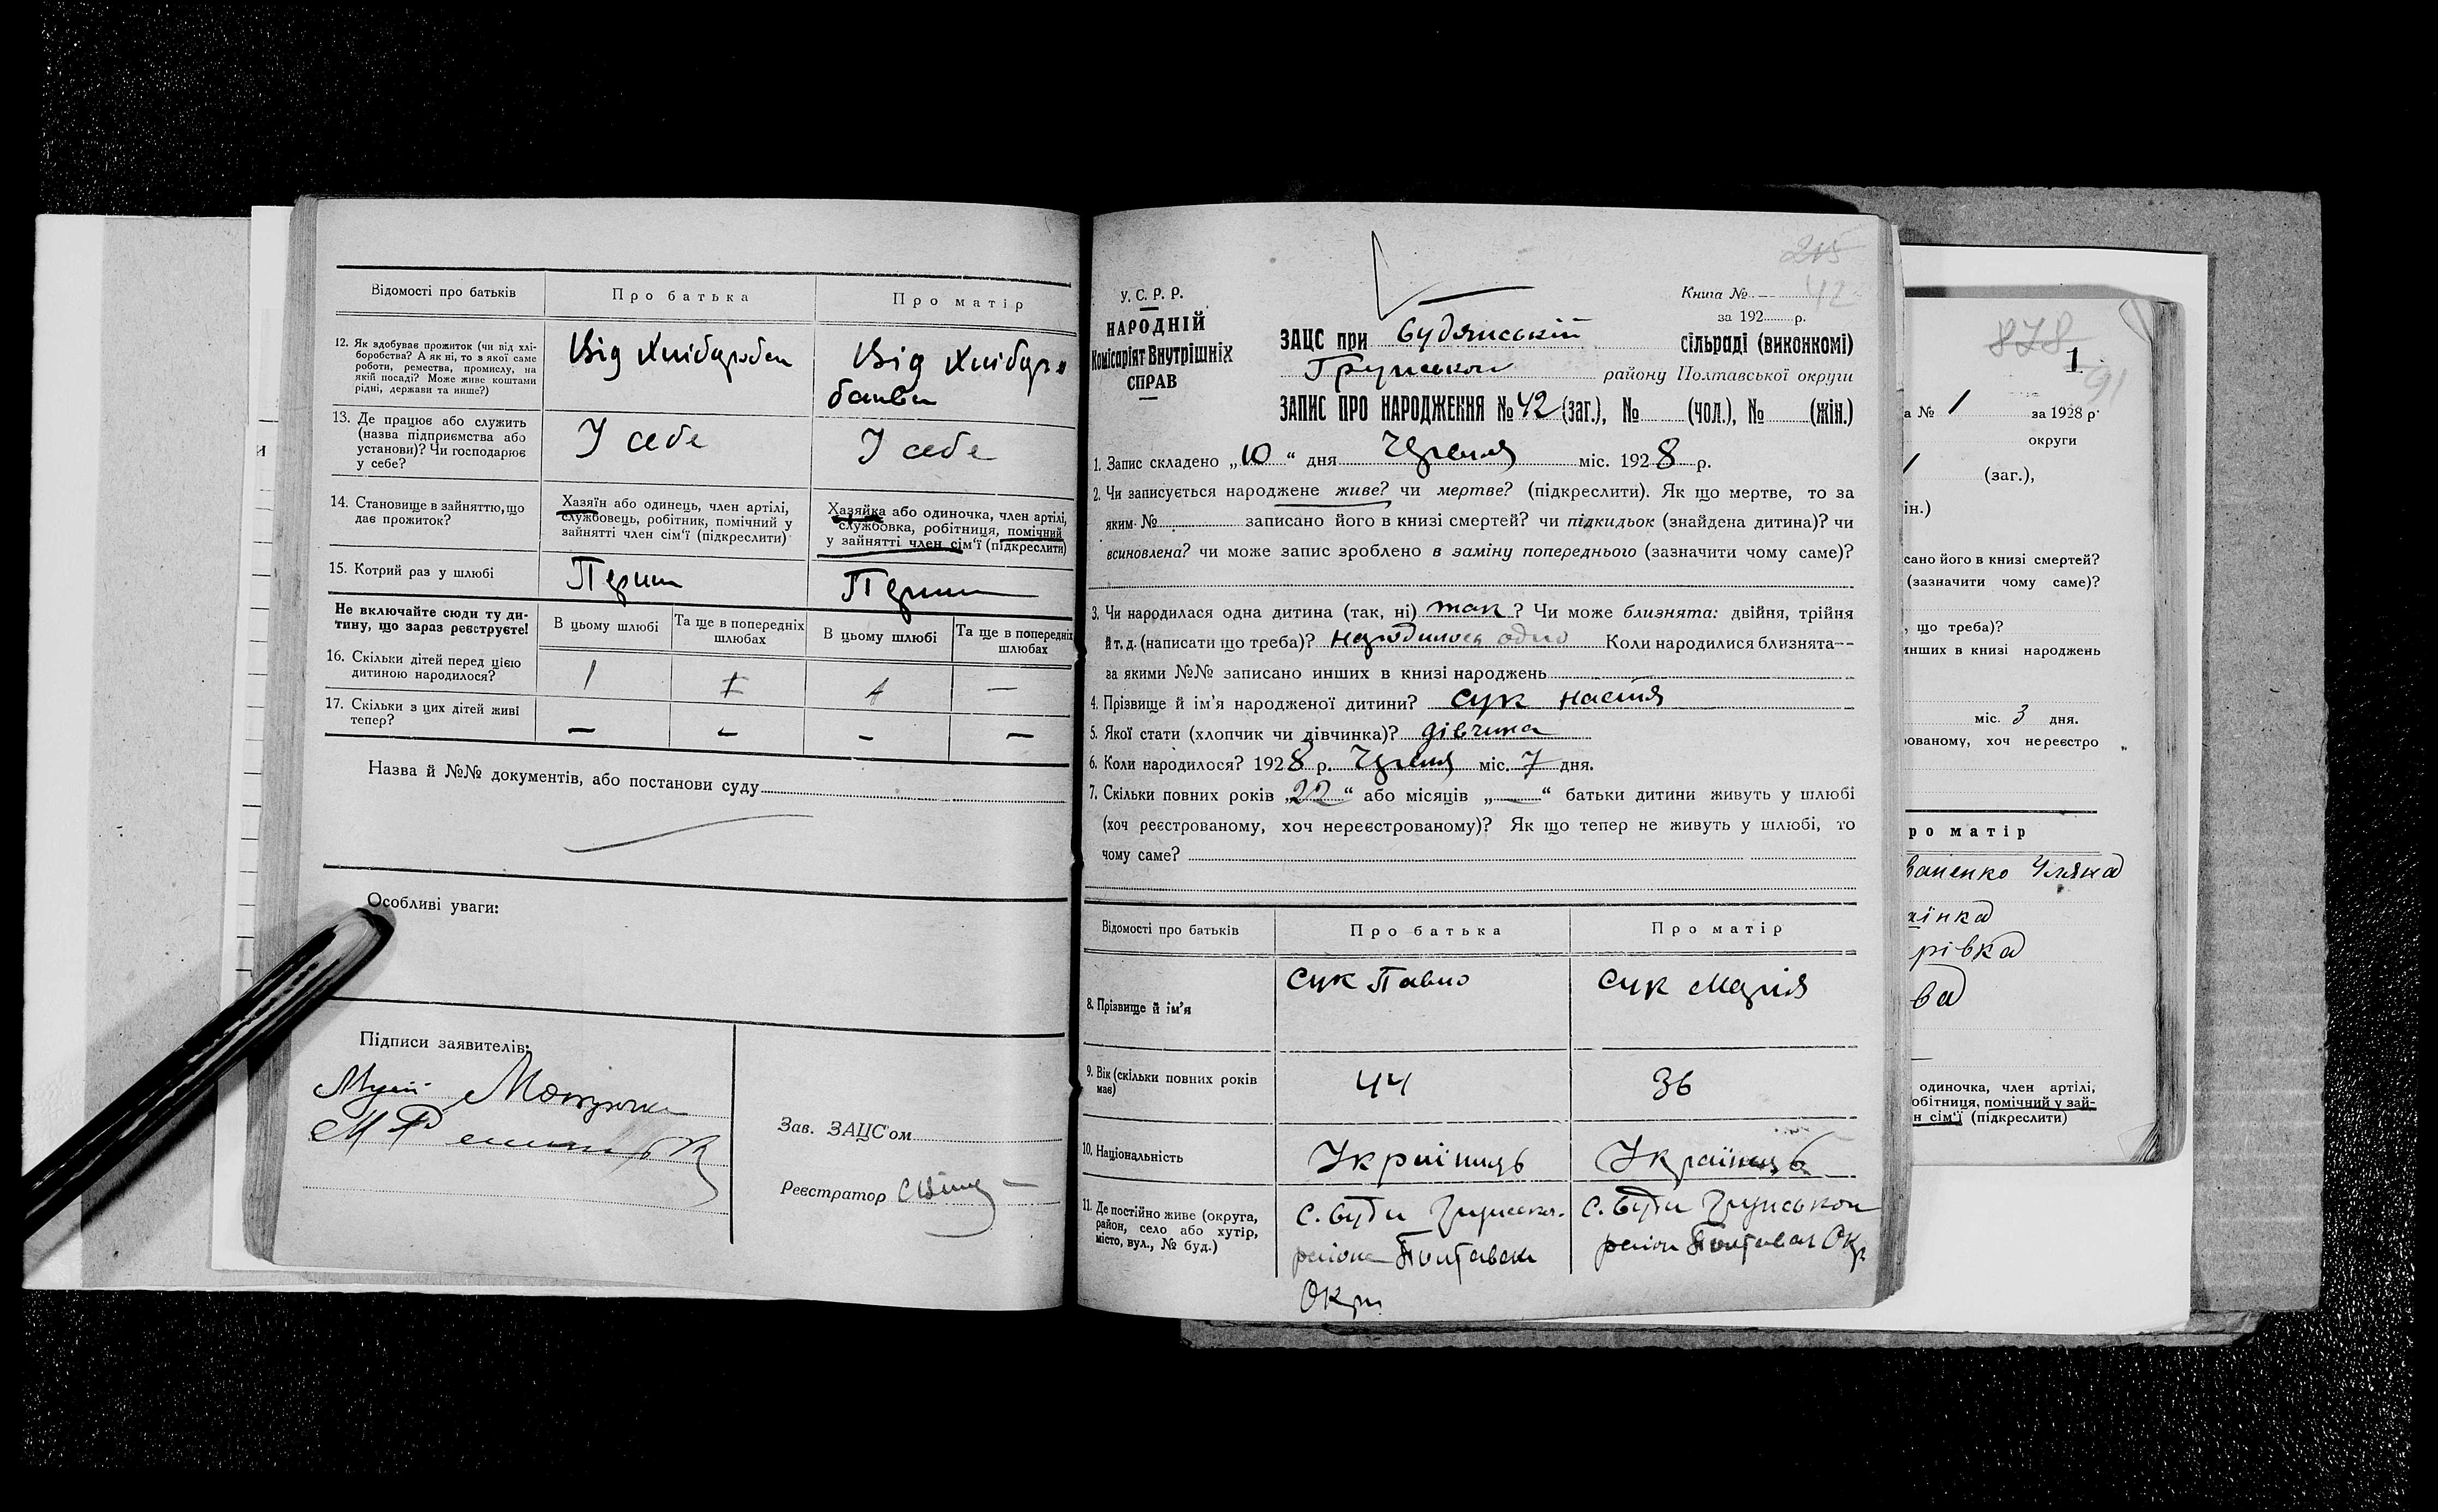 Відомості про батьків
Про батька
Про матір
12. Як здобуває прожиток (чи від хлі-
боробства? А як ні, то з якої саме
роботи, ремества, промислу, на
якій посаді? Може живе коштами
рідні, держави та инше?)
Від
Від
13. Де працює або служить
(назва підприємства або
установи)? Чи господарює
у себе?
У себе
У себе
14. Становище в зайняттю, що
дає прожиток?
Хазяїн або одинець, член артілі,
службовець, робітник, помічний у
зайнятті член сім'ї (підкреслити)
Хазяйка або одиночка, член артілі,
службовка, робітниця, помічний
у зайнятті член сім'ї (підкреслити)
15. Котрий раз у шлюбі
Не включайте сюди ту ди-
тину, що зараз реєструєте!
В цьому шлюбі
Та ще в попередніх
шлюбах
В цьому шлюбі
Та ще в попередніх
шлюбах
16. Скільки дітей перед цією
дитиною народилося?
1
—
17. Скільки з цих дітей живі
тепер?
— — — —
Назва й №№ документів, або постанови суду
Особливі уваги:
Підписи заявителів:
Зав. ЗАЦС'ом
Реєстратор
215
42
У. С. Р. Р.
НАРОДНІЙ
Комісаріят Внутрішніх
СПРАВ
Книга №
за 192 р.
ЗАЦС при Будянській сільраді (виконкомі)
району Полтавської округи
ЗАПИС ПРО НАРОДЖЕННЯ № 42 (заг.), № (чол.), № (жін.)
1. Запис складено „10" дня Червня міс. 1928 р.
2. Чи записується народжене живе? чи мертве? (підкреслити). Як що мертве, то за
яким № записано його в книзі смертей? чи підкидьок (знайдена дитина)? чи
всиновлена? чи може запис зроблено в заміну попереднього (зазначити чому саме)?
3. Чи народилася одна дитина (так, ні) так? Чи може близнята: двійня, трійня
й т. д. (написати що треба)? народилося одно Коли народилися близнята—
за якими №№ записано инших в книзі народжень
4. Прізвище й ім'я народженої дитини? Сук Настя
5. Якої стати (хлопчик чи дівчинка)? дівчина
6. Коли народилося? 1928 р. Червня міс. 7 дня.
7. Скільки повних років „22" або місяців „—" батьки дитини живуть у шлюбі
(хоч реєстрованому, хоч нереєстрованому)? Як що тепер не живуть у шлюбі, то
чому саме?
Відомості про батьків
Про батька
Про матір
8. Прізвище й ім'я
Сук Павло
Сук Марія
9. Вік (скільки повних років
має)
44
36
10. Національність
Українець
Українець
11. Де постійно живе (округа,
район, село або хутір,
місто, вул., № буд.)
с. Буди
с. Буди
878
1
91
а № 1 за 1928 р.
округи
(заг.),
ін.)
сано його в книзі смертей?
(зазначити чому саме)?
, що треба)?
инших в книзі народжень
міс. 3 дня.
ованому, хоч нереєстро
ро матір
ваненко Уляна
їнка
рівка
ва
одиночка, член артілі,
обітниця, помічний у зай-
н сім'ї (підкреслити)